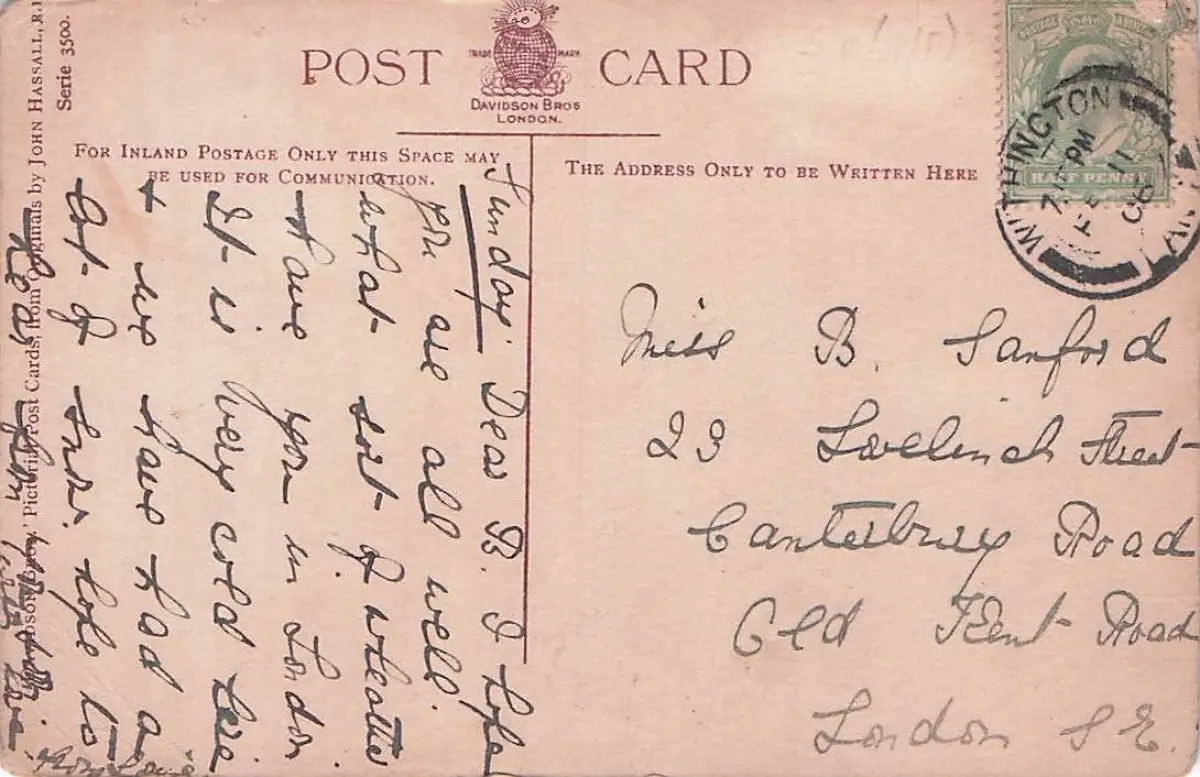 POST CARD
TRADE MARK
DAVIDSON BROS
LONDON.
FOR INLAND POSTAGE ONLY THIS SPACE MAY
BE USED FOR COMMUNICATION.
THE ADDRESS ONLY TO BE WRITTEN HERE
Pictorial Post Cards, from Originals by JOHN HASSALL, R.I
Serie 3500.
Sunday Dear B. I hope
you are all well.
what sort of wheatter
have you in London
It is very cold here
& we have had a
lot of snow. hope to
hear from you
love
from Louie
Miss B. Sanford
23 Lovelinch Street
Canterbury Road
Old Kent Road
London S.E.
HALF PENNY
WITHINGTON
PM
FE 11
06